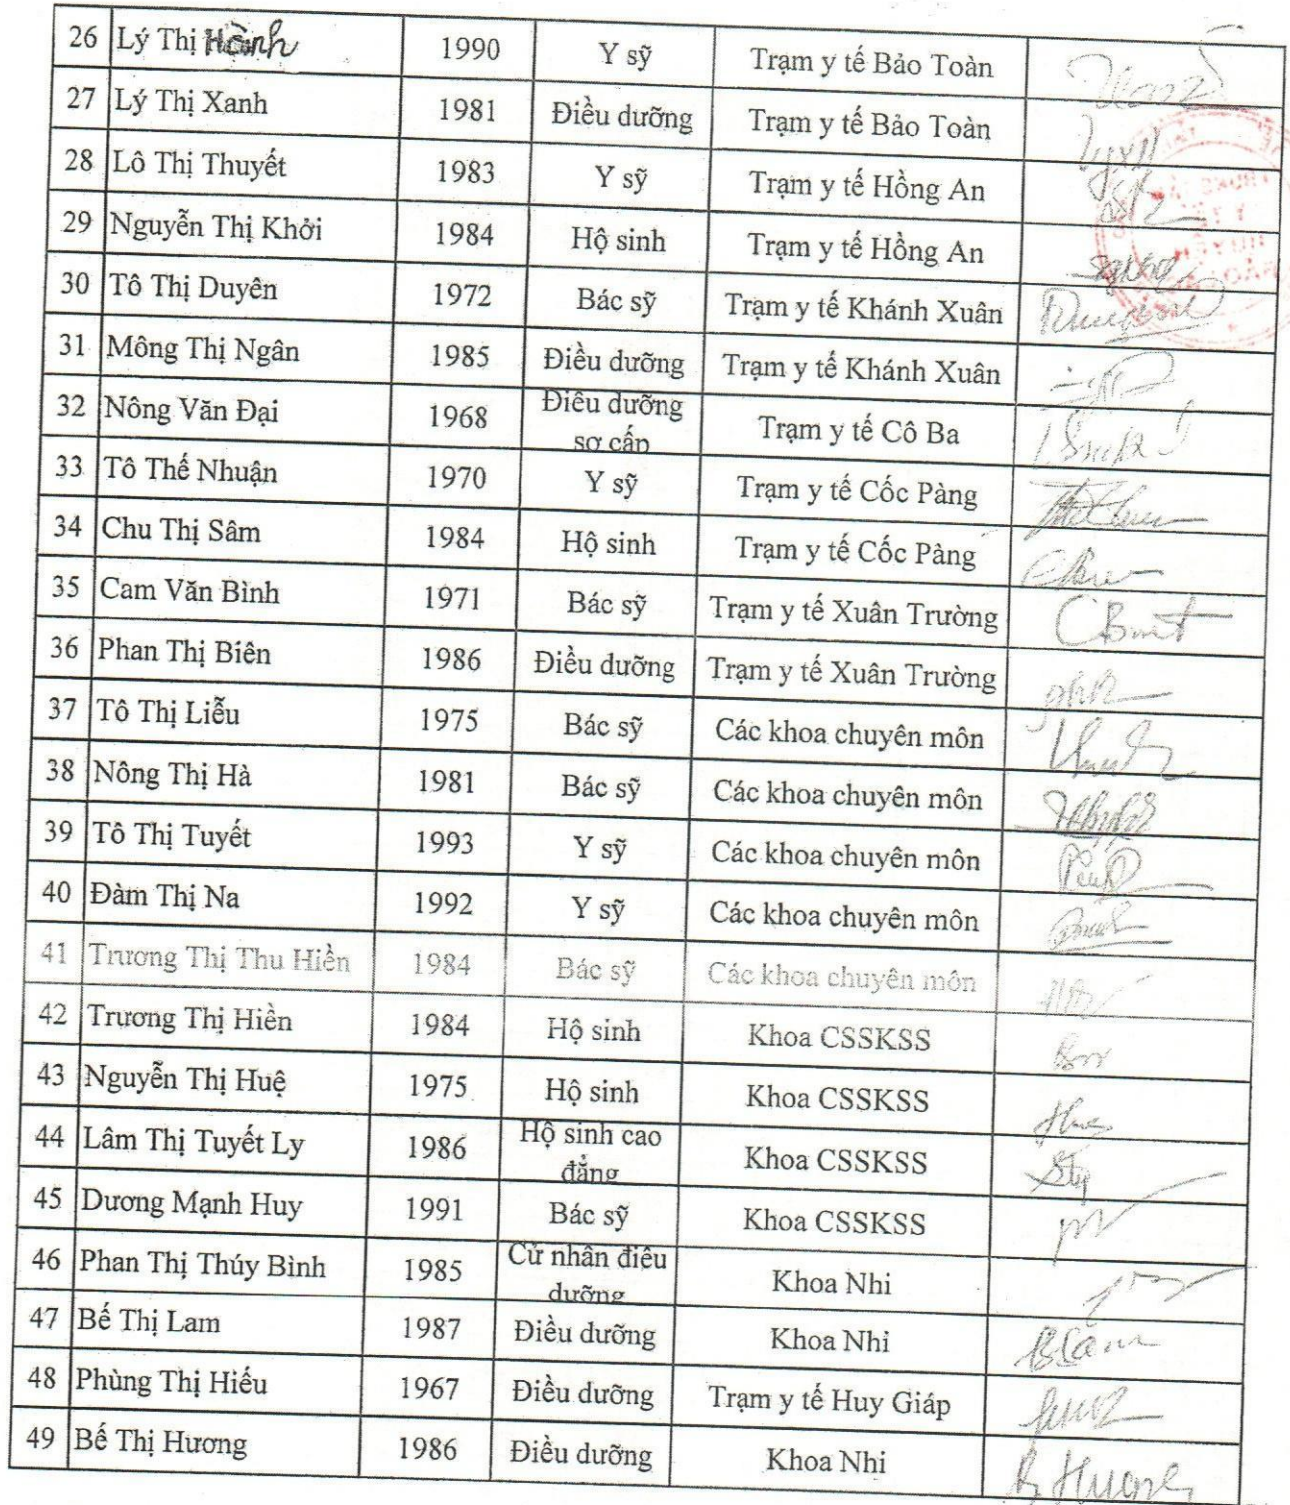 26 Lý Thị Hành 1990 Y sỹ Trạm y tế Bảo Toàn
27 Lý Thị Xanh 1981 Điều dưỡng Trạm y tế Bảo Toàn
28 Lô Thị Thuyết 1983 Y sỹ Trạm y tế Hồng An
29 Nguyễn Thị Khởi 1984 Hộ sinh Trạm y tế Hồng An
30 Tô Thị Duyên 1972 Bác sỹ Trạm y tế Khánh Xuân
31 Mông Thị Ngân 1985 Điều dưỡng Trạm y tế Khánh Xuân
32 Nông Văn Đại 1968 Điều dưỡng sơ cấp Trạm y tế Cô Ba
33 Tô Thế Nhuận 1970 Y sỹ Trạm y tế Cốc Pàng
34 Chu Thị Sâm 1984 Hộ sinh Trạm y tế Cốc Pàng
35 Cam Văn Bình 1971 Bác sỹ Trạm y tế Xuân Trường
36 Phan Thị Biên 1986 Điều dưỡng Trạm y tế Xuân Trường
37 Tô Thị Liễu 1975 Bác sỹ Các khoa chuyên môn
38 Nông Thị Hà 1981 Bác sỹ Các khoa chuyên môn
39 Tô Thị Tuyết 1993 Y sỹ Các khoa chuyên môn
40 Đàm Thị Na 1992 Y sỹ Các khoa chuyên môn
41 Trương Thị Thu Hiền 1984 Bác sỹ Các khoa chuyên môn
42 Trương Thị Hiền 1984 Hộ sinh Khoa CSSKSS
43 Nguyễn Thị Huệ 1975 Hộ sinh Khoa CSSKSS
44 Lâm Thị Tuyết Ly 1986 Hộ sinh cao đẳng Khoa CSSKSS
45 Dương Mạnh Huy 1991 Bác sỹ Khoa CSSKSS
46 Phan Thị Thúy Bình 1985 Cử nhân điều dưỡng Khoa Nhi
47 Bế Thị Lam 1987 Điều dưỡng Khoa Nhi BLam
48 Phùng Thị Hiếu 1967 Điều dưỡng Trạm y tế Huy Giáp
49 Bế Thị Hương 1986 Điều dưỡng Khoa Nhi B Hương